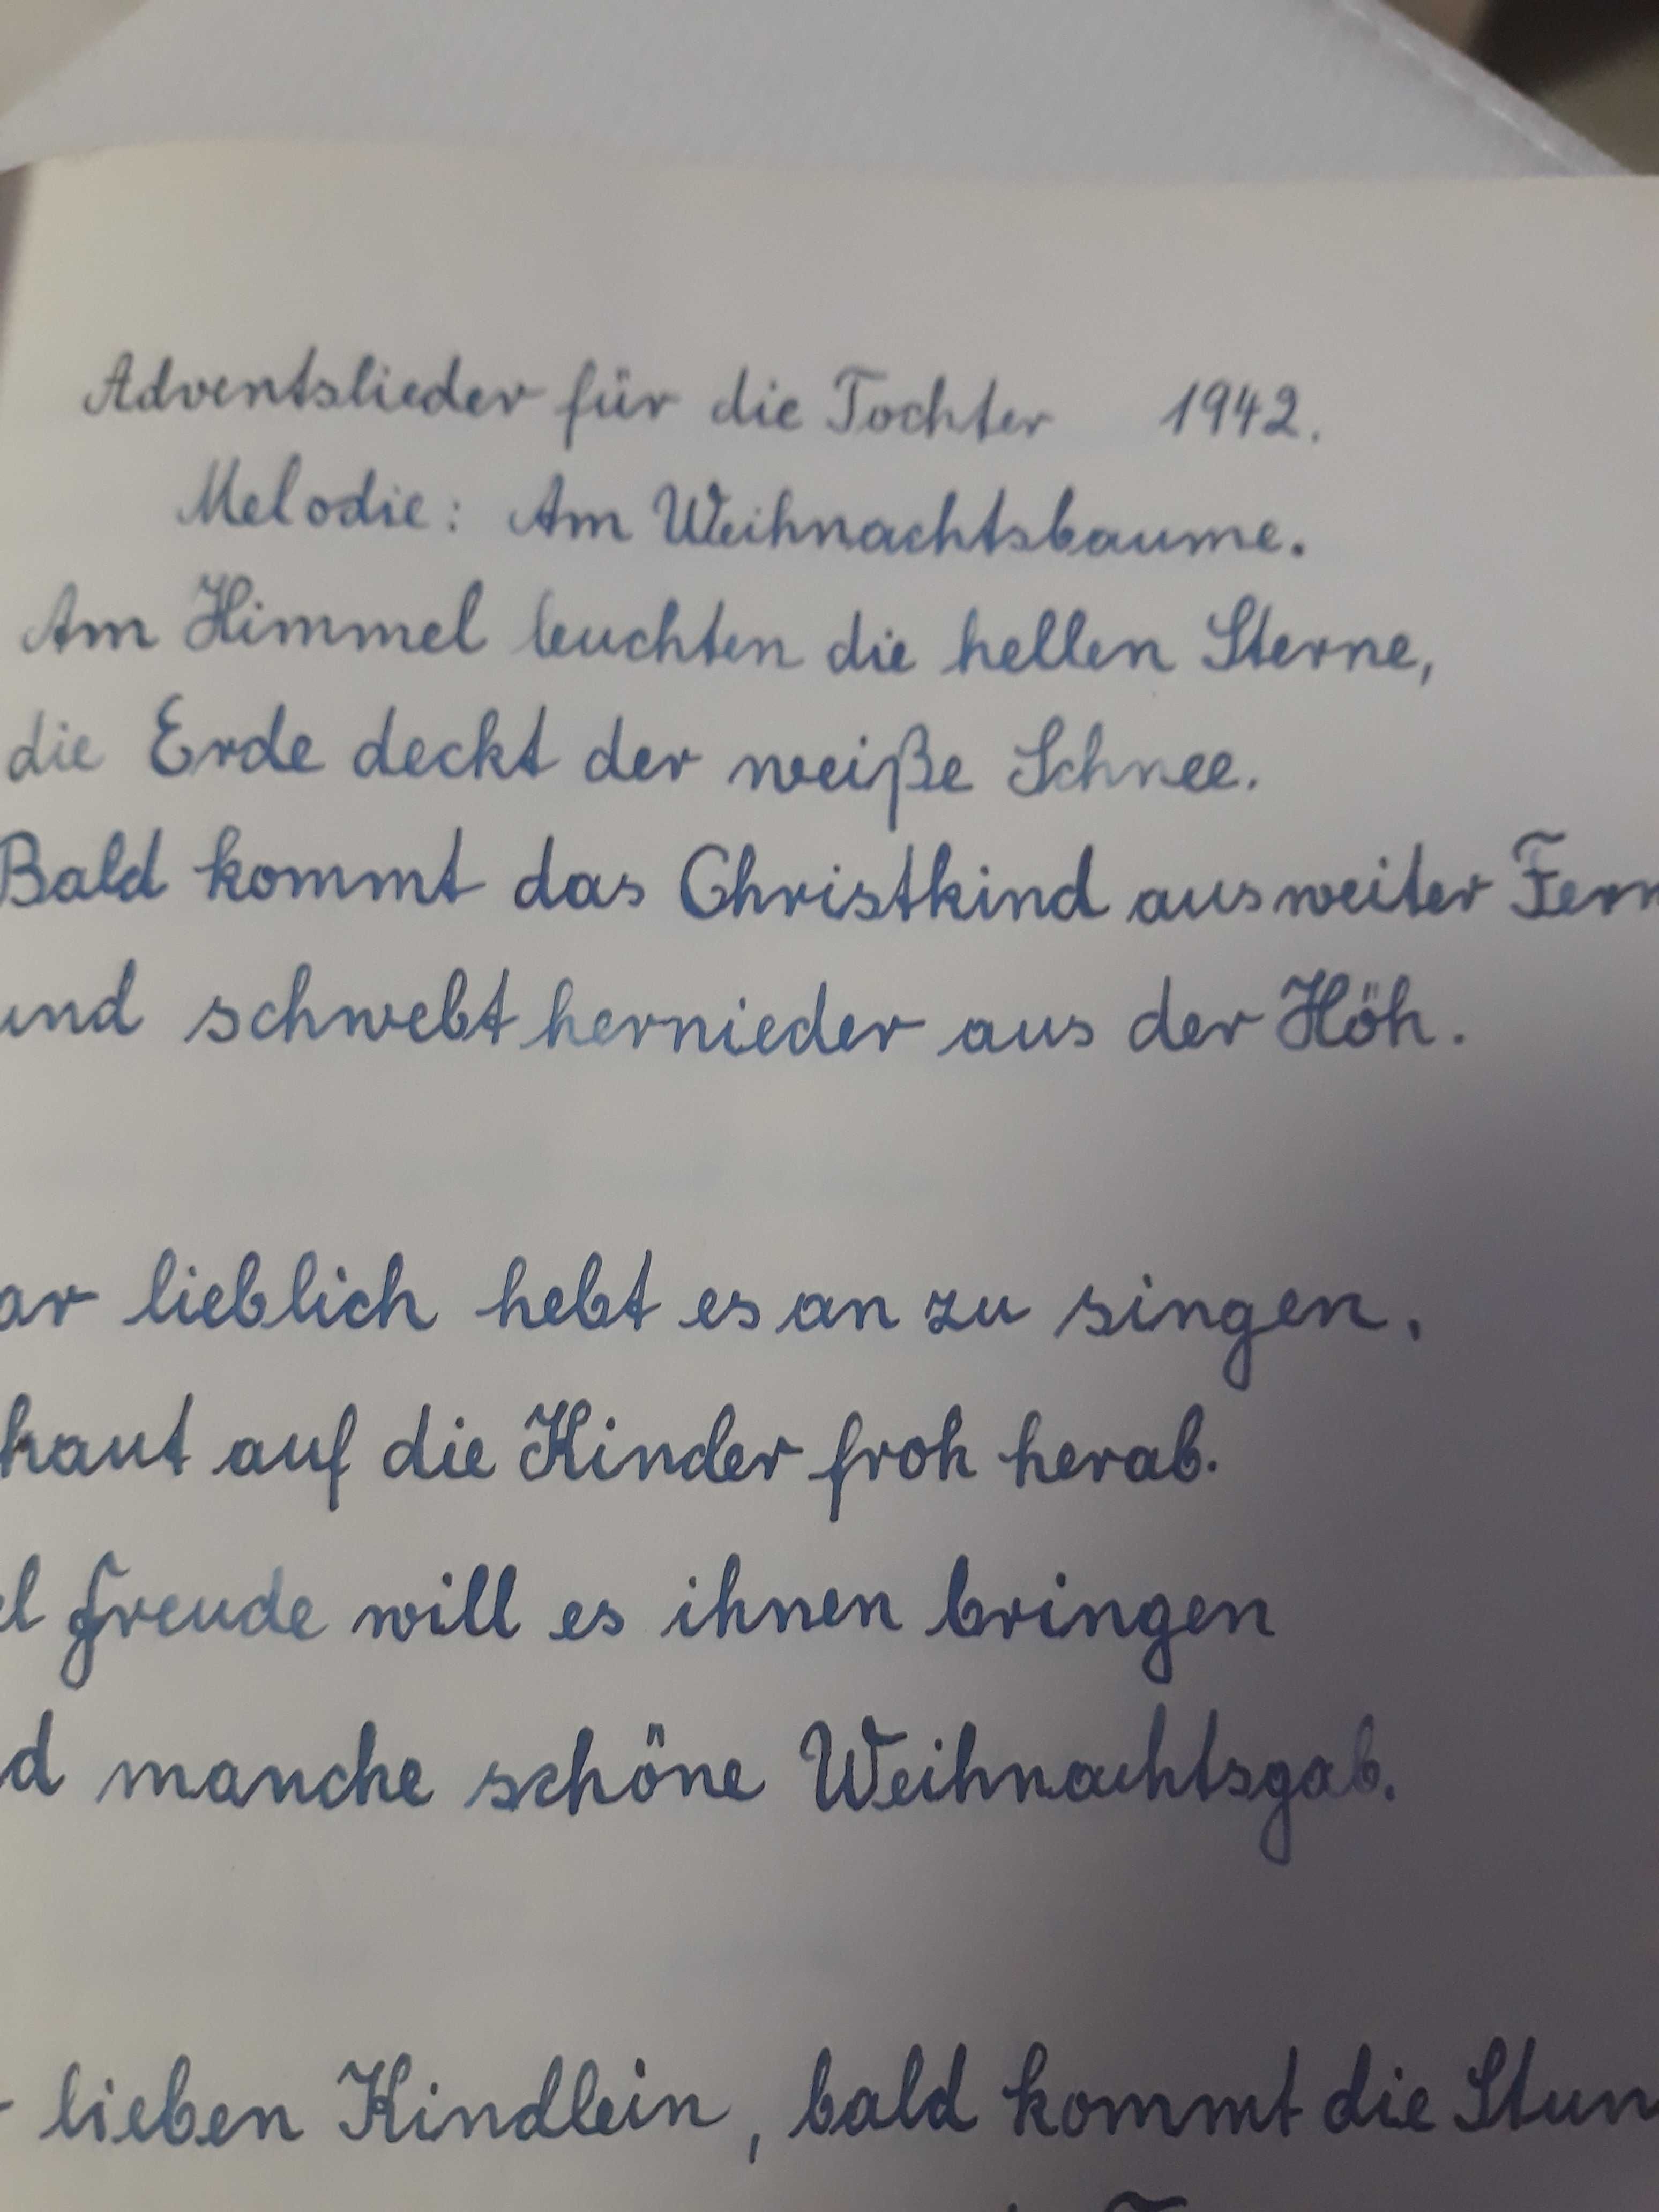 Adventslieder für die Tochter 1942.
Melodie: Am Weihnachtsbaume.
Am Himmel leuchten die hellen Sterne,
die Erde deckt der weiße Schnee.
Bald kommt das Christkind aus weiter Fern
und schwebt hernieder aus der Höh.
ar lieblich hebt es an zu singen,
haut auf die Kinder froh herab.
el Freude will es ihnen bringen
d manche schöne Weihnachtsgab.
lieben Kindlein, bald kommt die Stun